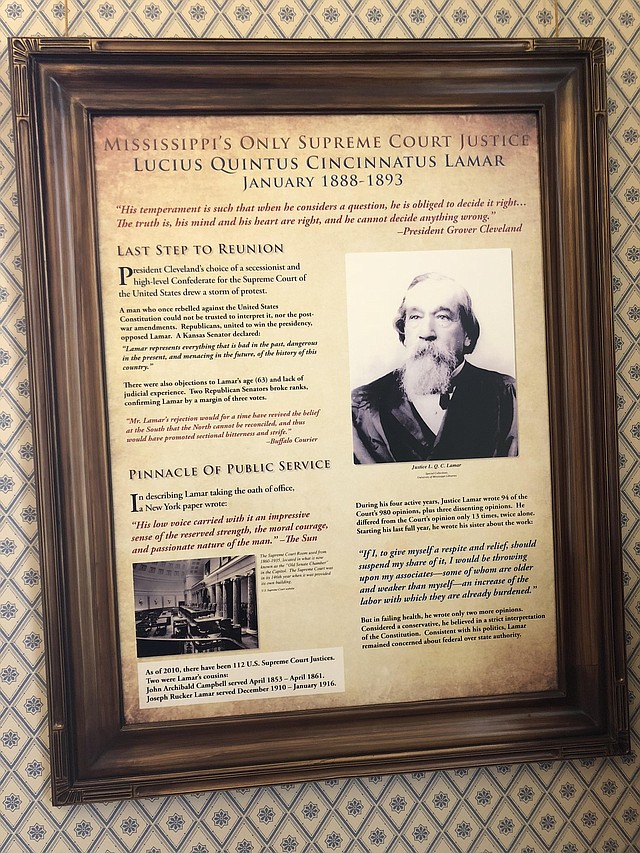 Mississippi's Only Supreme Court Justice
Lucius Quintus Cincinnatus Lamar
January 1888-1893
"His temperament is such that when he considers a question, he is obliged to decide it right…
The truth is, his mind and his heart are right, and he cannot decide anything wrong."
–President Grover Cleveland
Last Step to Reunion
President Cleveland's choice of a secessionist and
high-level Confederate for the Supreme Court of
the United States drew a storm of protest.
A man who once rebelled against the United States
Constitution could not be trusted to interpret it, nor the post-
war amendments. Republicans, united to win the presidency,
opposed Lamar. A Kansas Senator declared:
"Lamar represents everything that is bad in the past, dangerous
in the present, and menacing in the future, of the history of this
country."
There were also objections to Lamar's age (63) and lack of
judicial experience. Two Republican Senators broke ranks,
confirming Lamar by a margin of three votes.
"Mr. Lamar's rejection would for a time have revived the belief
at the South that the North cannot be reconciled, and thus
would have promoted sectional bitterness and strife."
–Buffalo Courier
Pinnacle Of Public Service
In describing Lamar taking the oath of office,
a New York paper wrote:
"His low voice carried with it an impressive
sense of the reserved strength, the moral courage,
and passionate nature of the man." –The Sun
The Supreme Court Room used from
1860-1935, located in what is now
known as the "Old Senate Chamber"
in the Capitol. The Supreme Court was
in its 146th year when it was provided
its own building.
As of 2010, there have been 112 U.S. Supreme Court Justices.
Two were Lamar's cousins:
John Archibald Campbell served April 1853 – April 1861.
Joseph Rucker Lamar served December 1910 – January 1916.
Justice L. Q. C. Lamar
Special Collections
University of Mississippi Libraries
During his four active years, Justice Lamar wrote 94 of the
Court's 980 opinions, plus three dissenting opinions. He
differed from the Court's opinion only 13 times, twice alone.
Starting his last full year, he wrote his sister about the work:
"If I, to give myself a respite and relief, should
suspend my share of it, I would be throwing
upon my associates—some of whom are older
and weaker than myself—an increase of the
labor with which they are already burdened."
But in failing health, he wrote only two more opinions.
Considered a conservative, he believed in a strict interpretation
of the Constitution. Consistent with his politics, Lamar
remained concerned about federal over state authority.